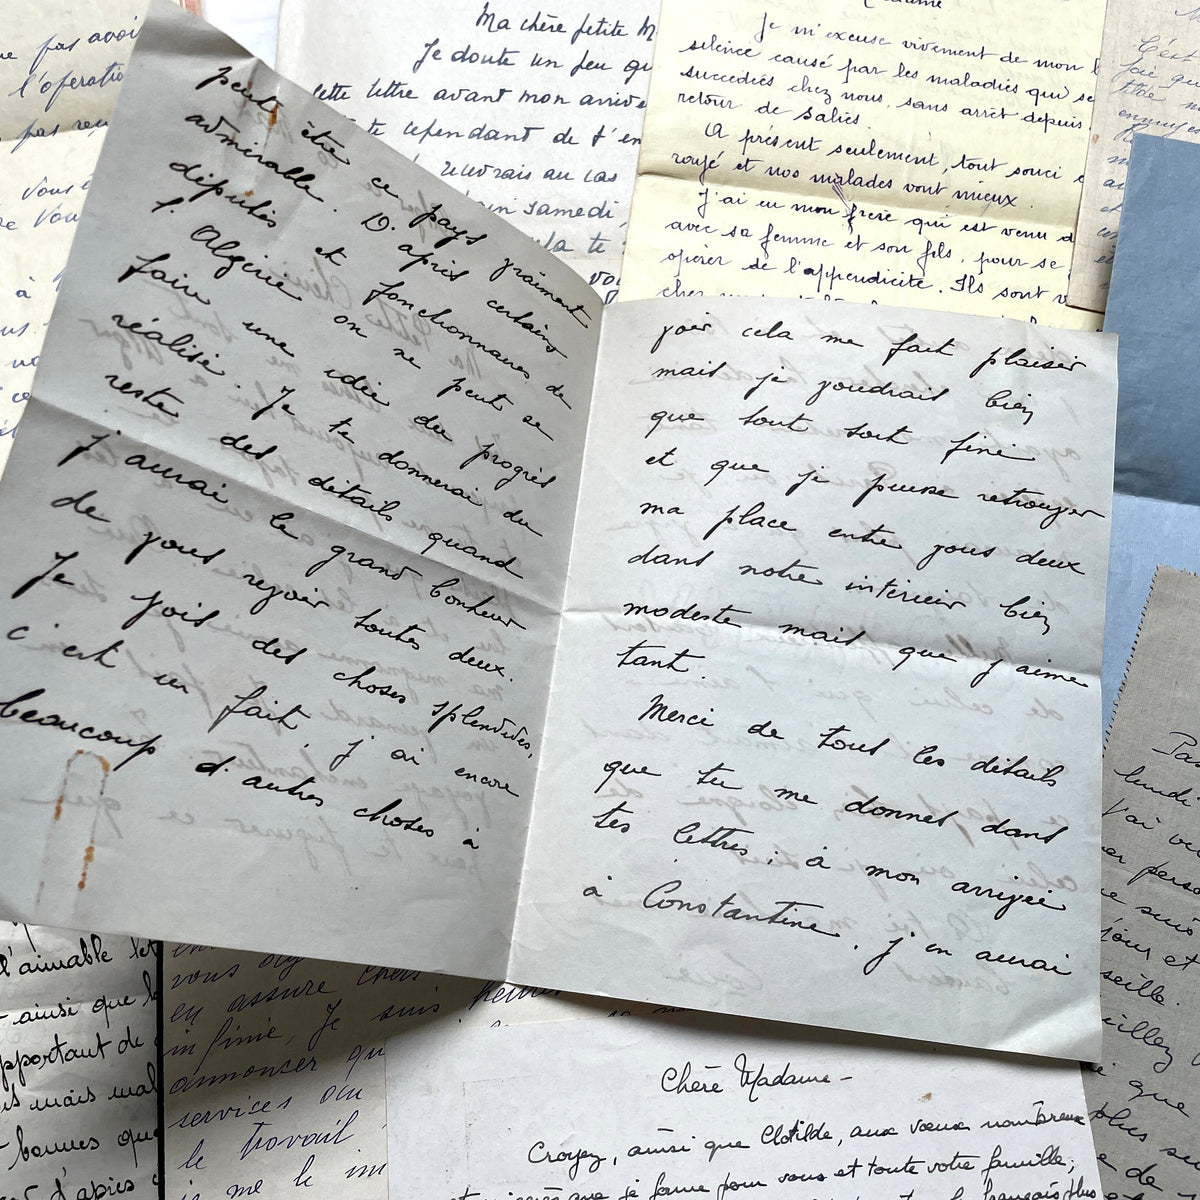 Ma chère petite M
Je doute un peu qu
cette lettre avant mon arrivé
cependant de t'en
recevrais au cas
samedi
la te
Je m'excuse vivement de mon l
silence causé par les maladies qui se
succédées chez nous, sans arrêt depuis
retour de Salies.
A présent seulement, tout souci e
rayé et nos malades vont mieux.
J'ai eu mon frère qui est venu d
avec sa femme et son fils, pour se
opérer de l'appendicite. Ils sont v
pas avoi
l'opératio
peut être ce pays vraiment
admirable. D'après certains
députés et fonctionnaires de
l'Algérie on ne peut se
faire une idée du progrès
réalisé. Je te donnerai du
reste des détails quand
j'aurai le grand bonheur
de vous revoir toutes deux.
Je vois des choses splendides,
c'est un fait, j'ai encore
beaucoup d'autres choses à
voir cela me fait plaisir
mais je voudrais bien
que tout soit fini
et que je puisse retrouver
ma place entre vous deux
dans notre intérieur bien
modeste mais que j'aime
tant.
Merci de tous les détails
que tu me donnes dans
tes lettres; à mon arrivée
à Constantine, j'en aurai
l'aimable let
ainsi que l
pportant de
mais mal
bonnes que
d'après
vous
en assure chers
infinie, Je suis heureu
annoncer qu
services au
le travail
me le im
Chère Madame -
Croyez, ainsi que Clotilde, aux vœux nombreux
que je forme pour vous et toute votre famille;
français plus
Pas
lundi
J'ai vu
er perso
suis
jour et
seille.
uillez
que
plus su
de